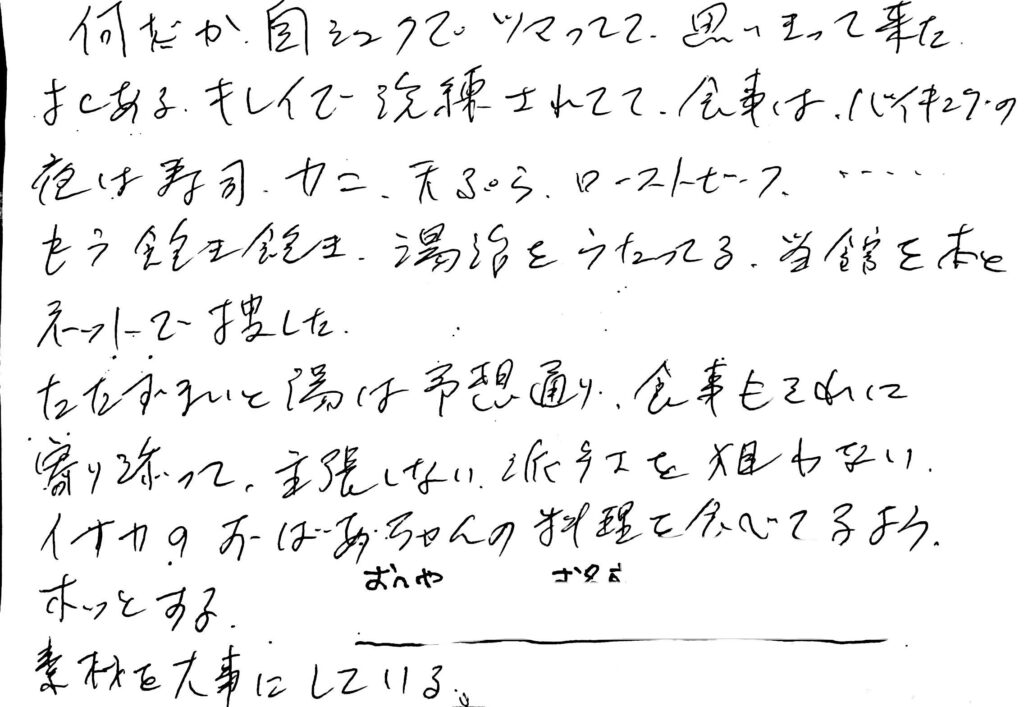 何だか、自シュクで。ツマってて、思い立って来た
はじめる、キレイで洗練されてて、食事は、バイキングの
夜は寿司、カニ、天ぷら、ローストビーフ、‥‥
もう飽き飽き、湯治をうたってる、当館を本と
ネットで捜した。
たたずまいと湯は予想通り、食事もそれに
寄り添って、主張しない、派デさを狙わない。
イナカのおばあちゃんの料理を食べてるよう。
ホッとする。
おへや
素材を大事にしている。